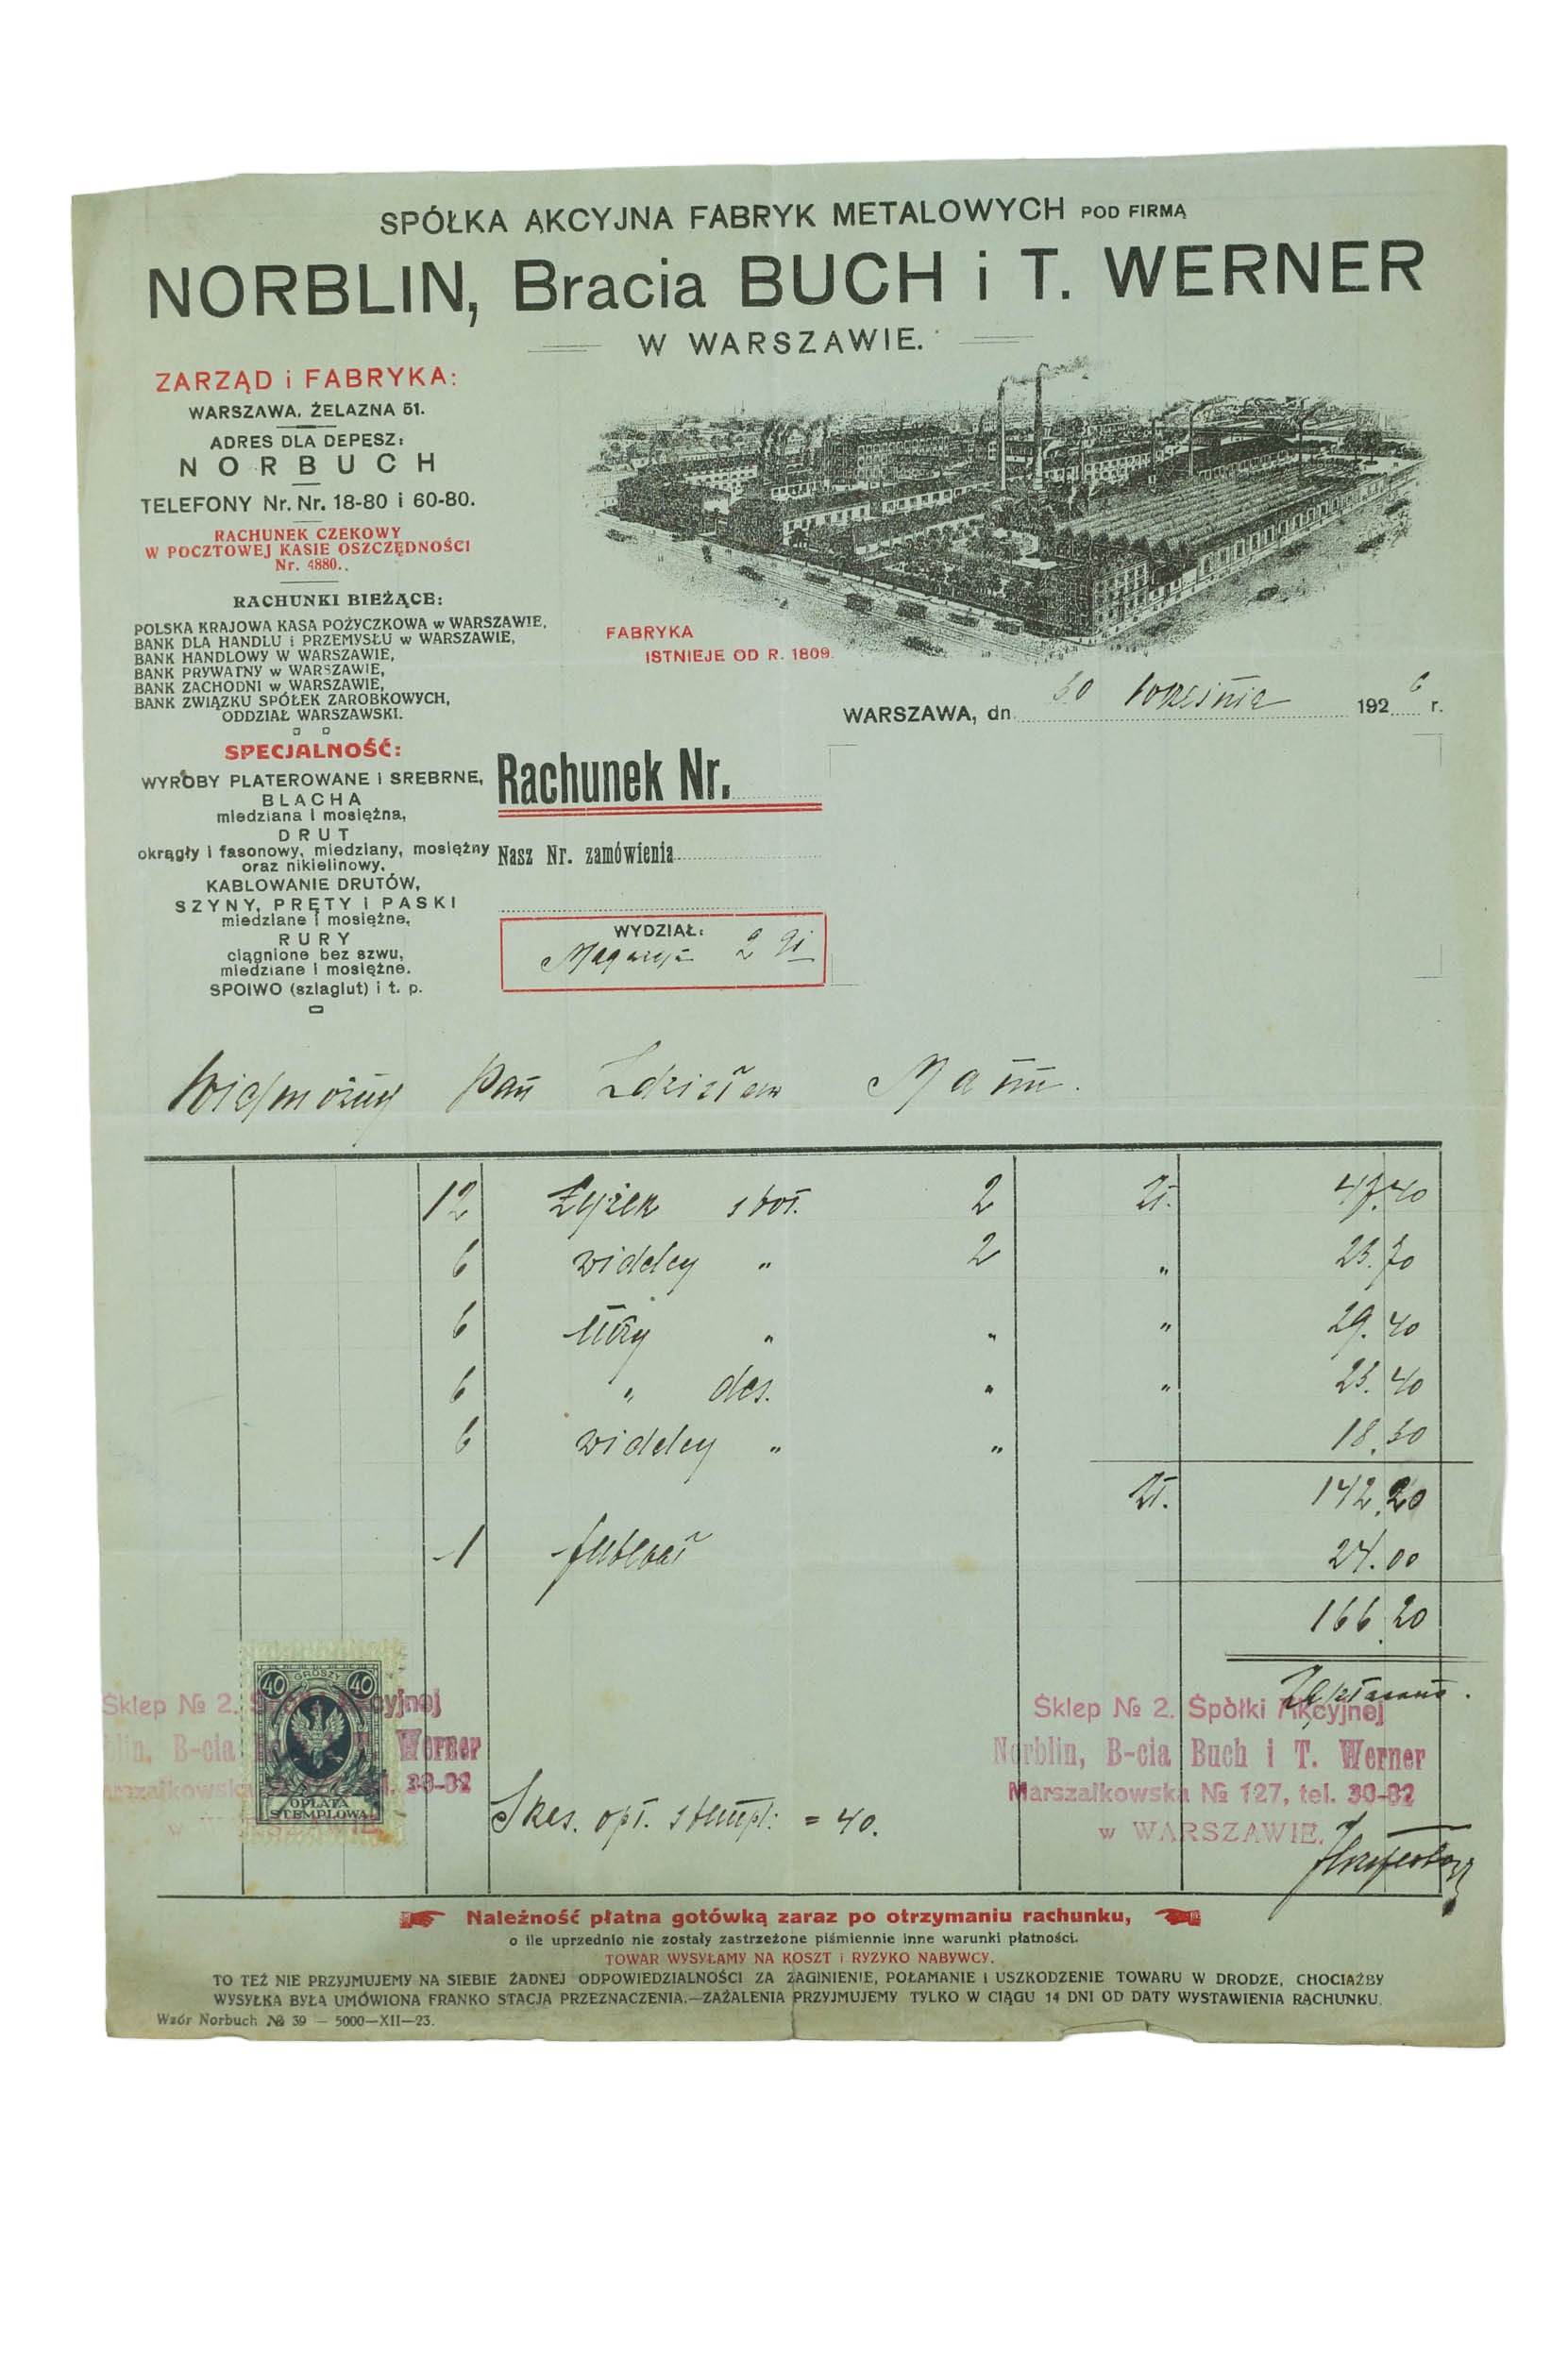 SPÓŁKA AKCYJNA FABRYK METALOWYCH POD FIRMĄ
NORBLIN, Bracia BUCH i T. WERNER
W WARSZAWIE.
ZARZĄD i FABRYKA:
WARSZAWA, ŻELAZNA 51.
ADRES DLA DEPESZ:
NORBUCH
TELEFONY Nr. Nr. 18-80 i 60-80.
RACHUNEK CZEKOWY
W POCZTOWEJ KASIE OSZCZĘDNOŚCI
Nr. 4880..
RACHUNKI BIEŻĄCE:
POLSKA KRAJOWA KASA POŻYCZKOWA w WARSZAWIE,
BANK DLA HANDLU i PRZEMYSŁU w WARSZAWIE,
BANK HANDLOWY W WARSZAWIE,
BANK PRYWATNY w WARSZAWIE,
BANK ZACHODNI w WARSZAWIE,
BANK ZWIĄZKU SPÓŁEK ZAROBKOWYCH,
ODDZIAŁ WARSZAWSKI.
FABRYKA
ISTNIEJE OD R. 1809.
WARSZAWA, dn. 30 września 1926 r.
SPECJALNOŚĆ:
WYROBY PLATEROWANE I SREBRNE,
BLACHA
miedziana i mosiężna,
DRUT
okrągły i fasonowy, miedziany, mosiężny
oraz nikielinowy,
KABLOWANIE DRUTÓW,
SZYNY, PRĘTY i PASKI
miedziane i mosiężne,
RURY
ciągnione bez szwu,
miedziane i mosiężne.
SPOIWO (szlaglut) i t. p.
Rachunek Nr.
Nasz Nr. zamówienia
WYDZIAŁ:
Magazyn 2 gi
Wielmożny Pan Zdzisław
12 Łyżek stoł. 2 Zł. 47.40
6 widelcy " 2 " 23.70
6 noży " " " 29.40
6 " des. " " 23.40
6 widelcy " " 18.30
Zł. 142.20
1 futerał 24.00
166.20
Zapłacono.
40 GROSZY 40
OPŁATA
STEMPLOWA
Sklep № 2. Spółki Akcyjnej
Norblin, B-cia Buch i T. Werner
Marszałkowska № 127, tel. 30-82
w WARSZAWIE.
Skas. opł. stempl: = 40.
Sklep № 2. Spółki Akcyjnej
Norblin, B-cia Buch i T. Werner
Marszałkowska № 127, tel. 30-82
w WARSZAWIE.
Należność płatna gotówką zaraz po otrzymaniu rachunku,
o ile uprzednio nie zostały zastrzeżone piśmiennie inne warunki płatności.
TOWAR WYSYŁAMY NA KOSZT i RYZYKO NABYWCY.
TO TEŻ NIE PRZYJMUJEMY NA SIEBIE ŻADNEJ ODPOWIEDZIALNOŚCI ZA ZAGINIENIE, POŁAMANIE I USZKODZENIE TOWARU W DRODZE, CHOCIAŻBY
WYSYŁKA BYŁA UMÓWIONA FRANKO STACJA PRZEZNACZENIA.—ZAŻALENIA PRZYJMUJEMY TYLKO W CIĄGU 14 DNI OD DATY WYSTAWIENIA RACHUNKU.
Wzór Norbuch № 39 — 5000—XII—23.